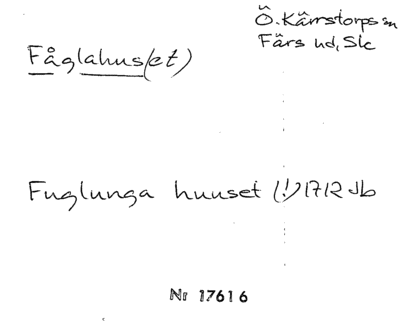 Ö. Kärrstorps sn
Färs hd, Slc
Fåglahus(et)
Fuglunga huuset (!) 1712 Jb
Nr 17616